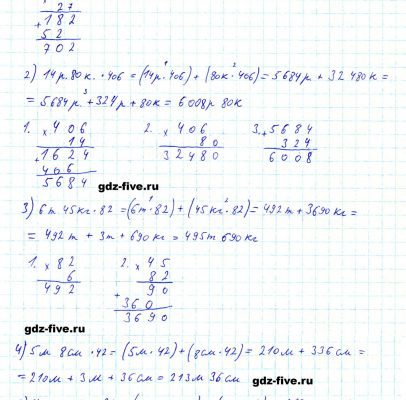 27
+ 182
52
702
2) 14р. 80к. · 406 = (14р · 406) + (80к · 406) = 5684р + 32480к =
= 5684р + 324р + 80к = 6008р 80к
1. × 406 2. × 406 3. + 5684
14 80 324
+ 1624 32480 6008
406
5684
gdz-five.ru
3) 6т 45кг · 82 = (6т · 82) + (45кг · 82) = 492т + 3690кг =
= 492т + 3т + 690кг = 495т 690кг
1. × 82 2. × 45
6 82
492 + 90
360
3690
gdz-five.ru
4) 5м 8см · 42 = (5м · 42) + (8см · 42) = 210м + 336см =
= 210м + 3м + 36см = 213м 36см
gdz-five.ru